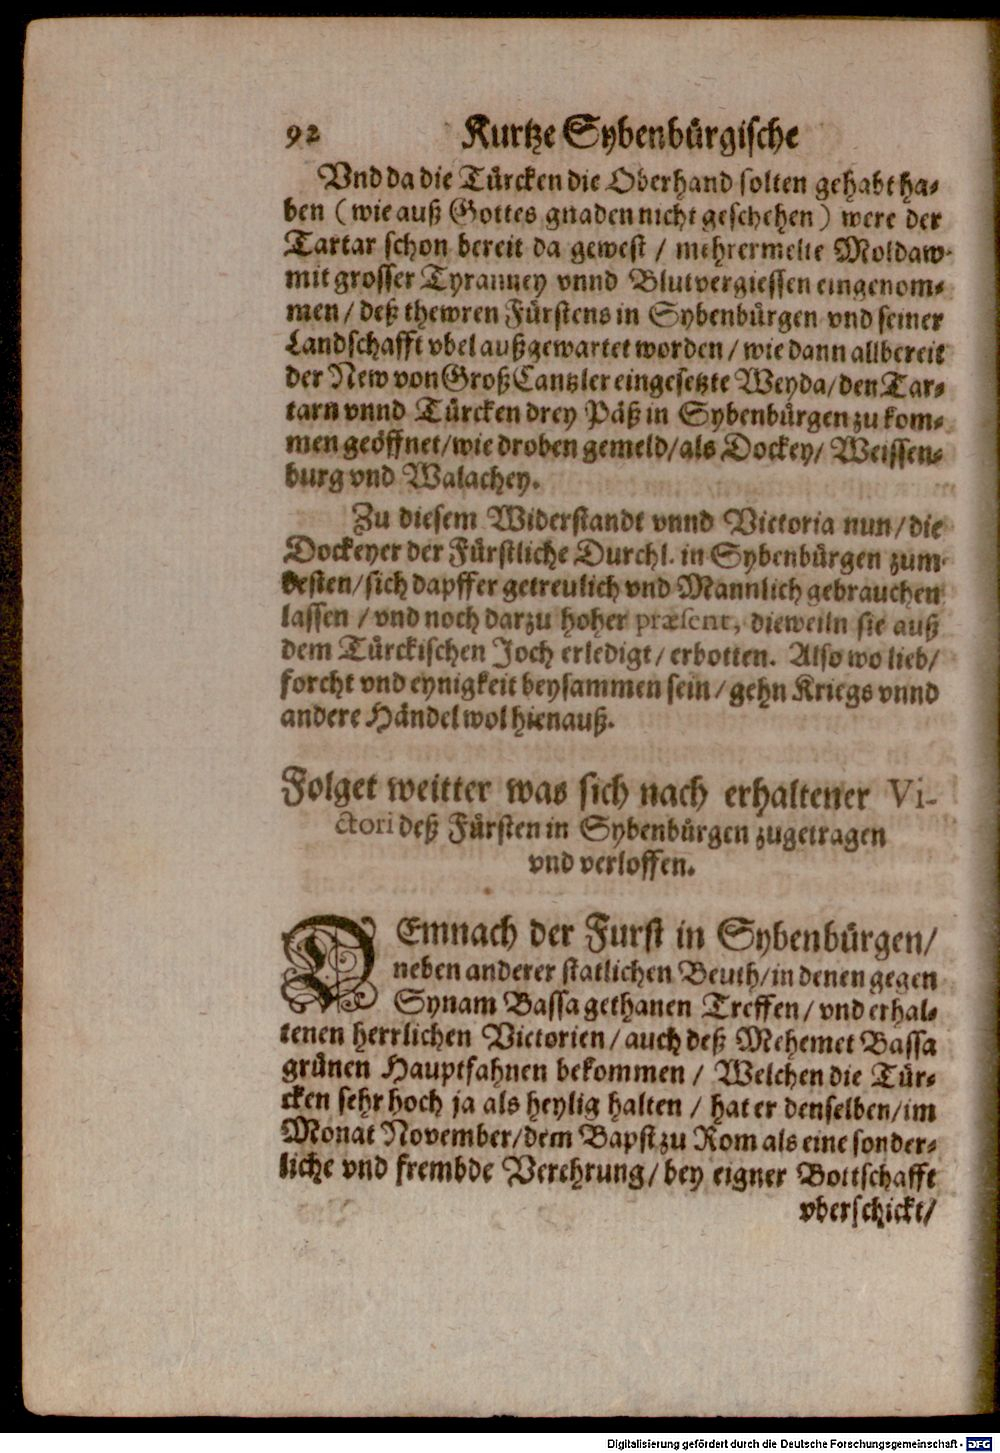 92 Kurtze Sybenbürgische
Vnd da die Türcken die Oberhand solten gehabt ha-
ben (wie auß Gottes gnaden nicht geschehen) were der
Tartar schon bereit da gewest / mehrermelte Moldaw
mit grosser Tyranney vnnd Blutvergiessen eingenom-
men / deß thewren Fürstens in Sybenbürgen vnd seiner
Landschafft vbel außgewartet worden / wie dann allbereit
der New von Groß Cantzler eingesetzte Weyda / den Tar-
tarn vnnd Türcken drey Päß in Sybenbürgen zu kom-
men geöffnet / wie droben gemeld / als Dockey / Weissen-
burg vnd Walachey.
Zu diesem Widerstandt vnnd Victoria nun / die
Dockeyer der Fürstliche Durchl. in Sybenbürgen zum
besten / sich dapffer getreulich vnd Mannlich gebrauchen
lassen / vnd noch darzu hoher præsent, dieweiln sie auß
dem Türckischen Joch erledigt / erbotten. Also wo lieb /
forcht vnd eynigkeit beysammen sein / gehn Kriegs vnnd
andere Händel wol hienauß.
Folget weitter was sich nach erhaltener Vi-
ctori deß Fürsten in Sybenbürgen zugetragen
vnd verloffen.
DEmnach der Furst in Sybenbürgen /
neben anderer statlichen Beuth / in denen gegen
Synam Bassa gethanen Treffen / vnd erhal-
tenen herrlichen Victorien / auch deß Mehemet Bassa
grünen Hauptfahnen bekommen / Welchen die Tür-
cken sehr hoch ja als heylig halten / hat er denselben / im
Monat November / dem Bapst zu Rom als eine sonder-
liche vnd frembde Verehrung / bey eigner Bottschafft
vberschickt /
Digitalisierung gefördert durch die Deutsche Forschungsgemeinschaft - DFG